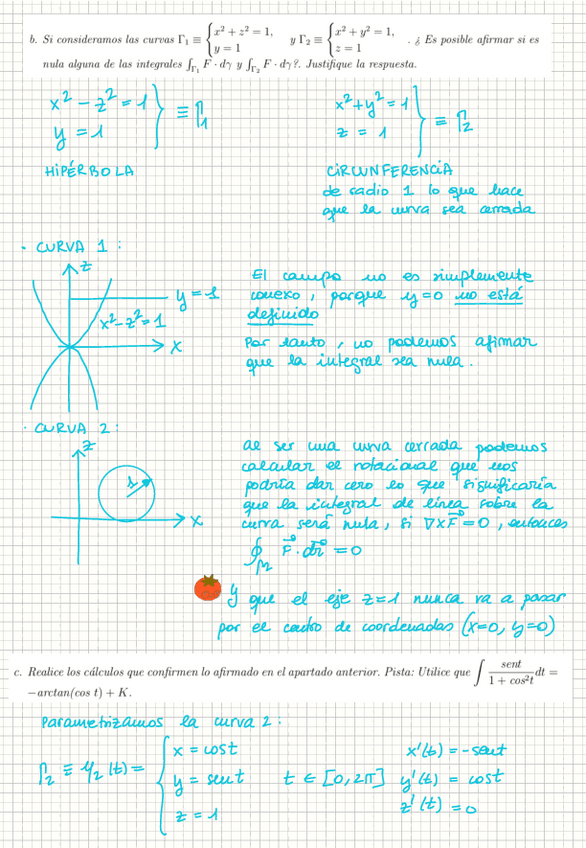 b. Si consideramos las curvas Γ₁ ≡ { x² + z² = 1, y = 1 y Γ₂ ≡ { x² + y² = 1, z = 1 . ¿ Es posible afirmar si es
nula alguna de las integrales ∫_Γ₁ F · dγ y ∫_Γ₂ F · dγ?. Justifique la respuesta.
x² - z² = 1
y = 1 } ≡ Γ₁
x² + y² = 1
z = 1 } ≡ Γ₂
HIPÉRBOLA
CIRCUNFERENCIA
de radio 1 lo que hace
que la curva sea cerrada
· CURVA 1 :
z
y = 1
x² - z² = 1
x
El campo no es simplemente
conexo, porque y=0 no está
definido
Por tanto, no podemos afimar
que la integral sea nula.
· CURVA 2 :
z
1
x
al ser una curva cerrada podemos
calcular el rotacional que nos
podría dar cero lo que significaría
que la integral de línea sobre la
curva será nula, si ∇×F⃗ = 0, entonces
∮_Γ₂ F⃗ · dr⃗ = 0
y que el eje z=1 nunca va a pasar
por el centro de coordenadas (x=0, y=0)
c. Realice los cálculos que confirmen lo afirmado en el apartado anterior. Pista: Utilice que ∫ sent / 1 + cos²t dt =
−arctan(cos t) + K.
Parametrizamos la curva 2 :
Γ₂ ≡ φ₂(t) = {
x = cost
y = sent
z = 1
t ∈ [0, 2π]
x'(t) = -sent
y'(t) = cost
z'(t) = 0